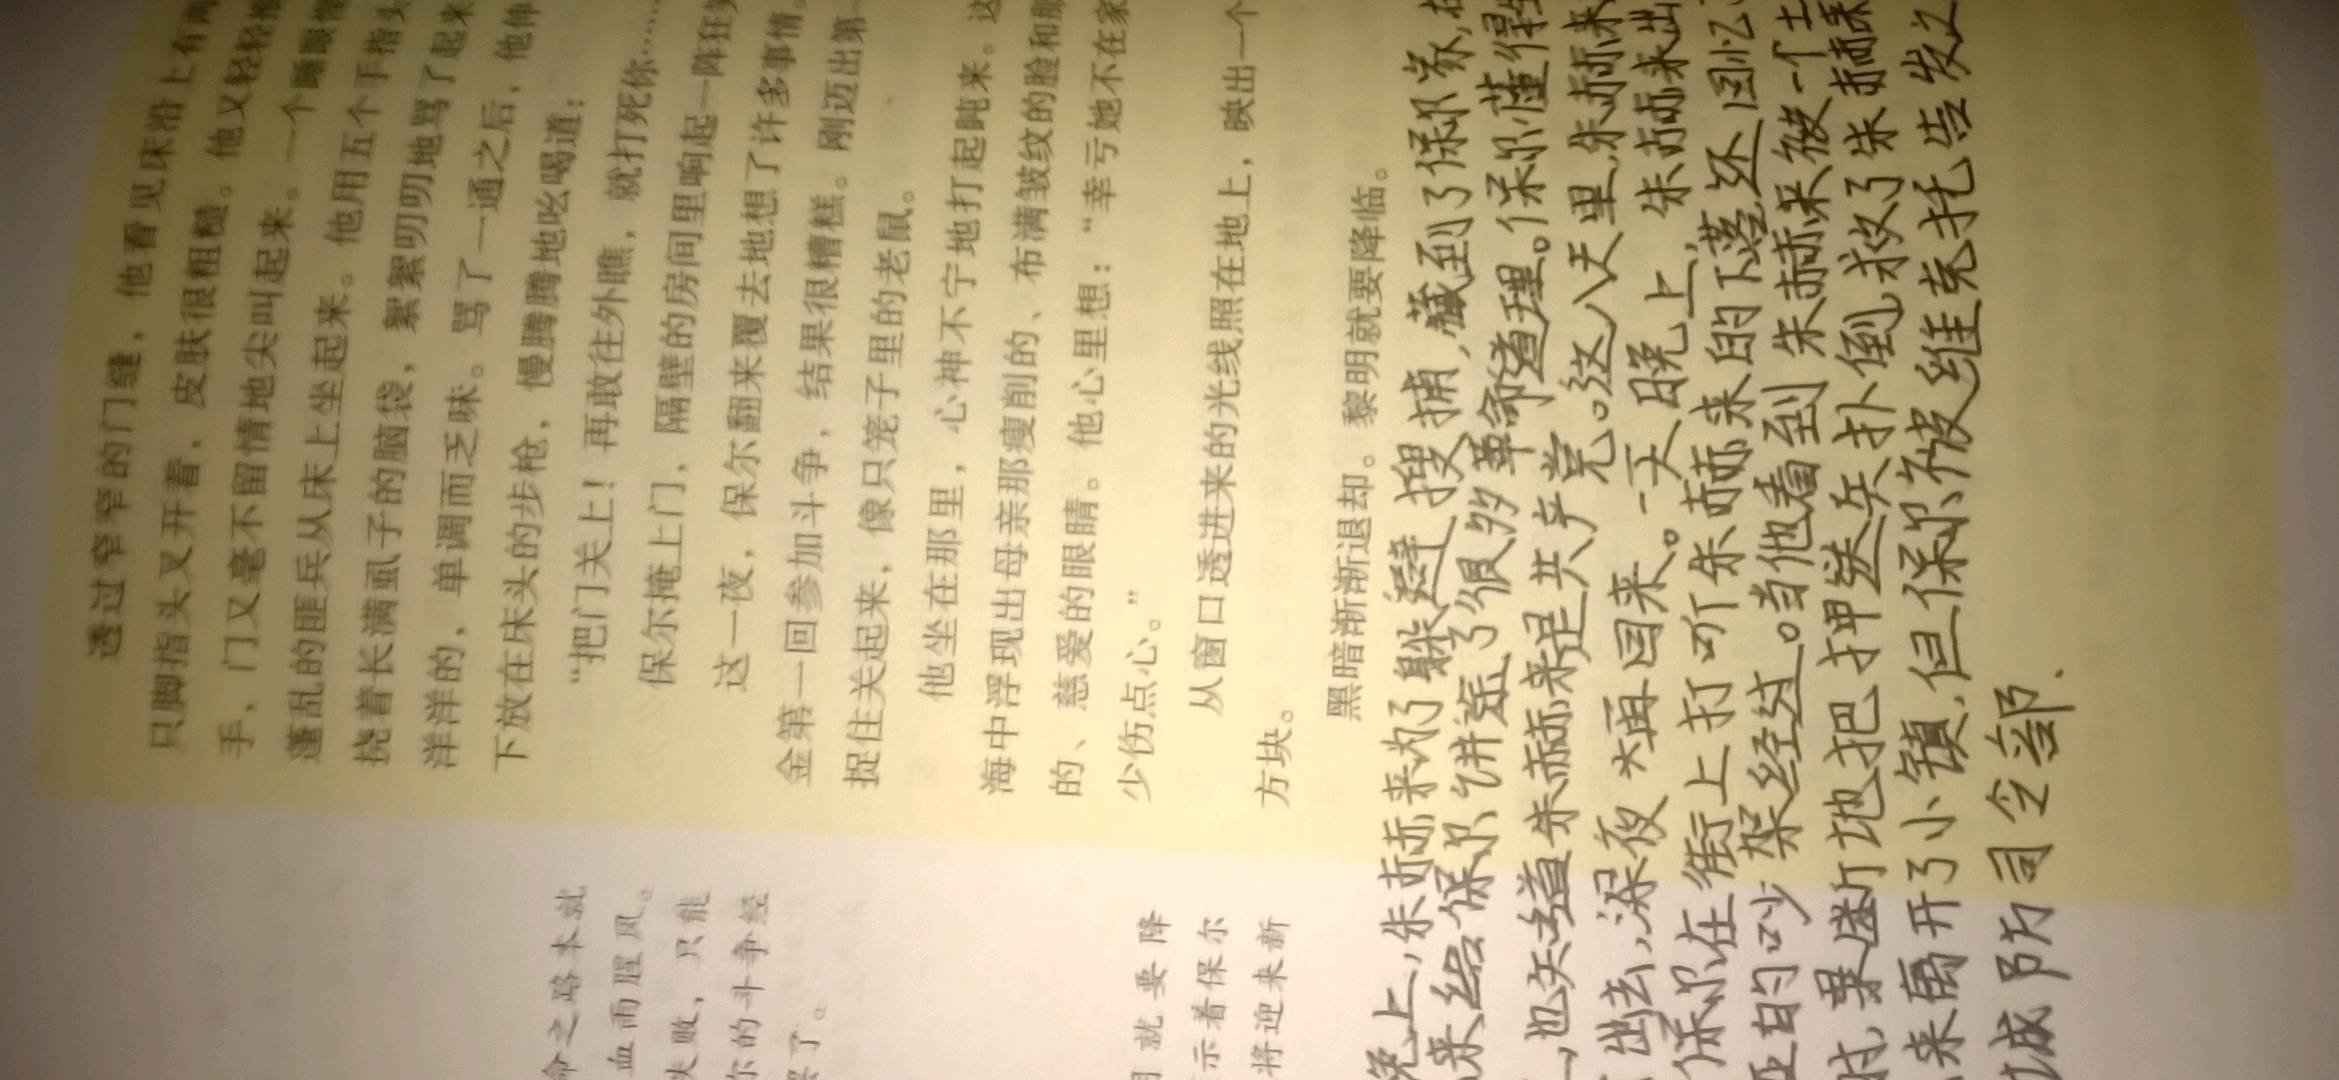 透过窄窄的门缝，他看见床沿上有两
只脚指头叉开着，皮肤很粗糙。他又轻轻推
手，门又毫不留情地尖叫起来。一个睡眼惺
蓬乱的匪兵从床上坐起来。他用五个手指头
挠着长满虱子的脑袋，絮絮叨叨地骂了起来
洋洋的，单调而乏味。骂了一通之后，他伸
下放在床头的步枪，慢腾腾地吆喝道：
“把门关上！再敢往外瞧，就打死你……
保尔掩上门，隔壁的房间里响起一阵狂笑
这一夜，保尔翻来覆去地想了许多事情。
金第一回参加斗争，结果很糟糕。刚迈出第一
捉住关起来，像只笼子里的老鼠。
他坐在那里，心神不宁地打起盹来。这
海中浮现出母亲那瘦削的、布满皱纹的脸和那
的、慈爱的眼睛。他心里想：“幸亏她不在家
少伤点心。”
从窗口透进来的光线照在地上，映出一个
方块。
黑暗渐渐退却。黎明就要降临。
命之路本就
血雨腥风。
失败，只能
尔的斗争经
罢了。
就要降
示着保尔
将迎来新
晚上，朱赫来为了躲避搜捕，藏到了保尔家，在
来给保尔讲述了很多革命道理。保尔懂得
也知道朱赫来是共产党。这八天里，朱赫来
出去，深夜才再回来。一天晚上，朱赫来出
保尔在街上打听朱赫来的下落还回忆
亚的吵架经过。当他看到朱赫来被一个士
时，果断地把押送兵扑倒，救了朱赫来
来离开了小镇，但保尔被维克托告发之
城防司令部．